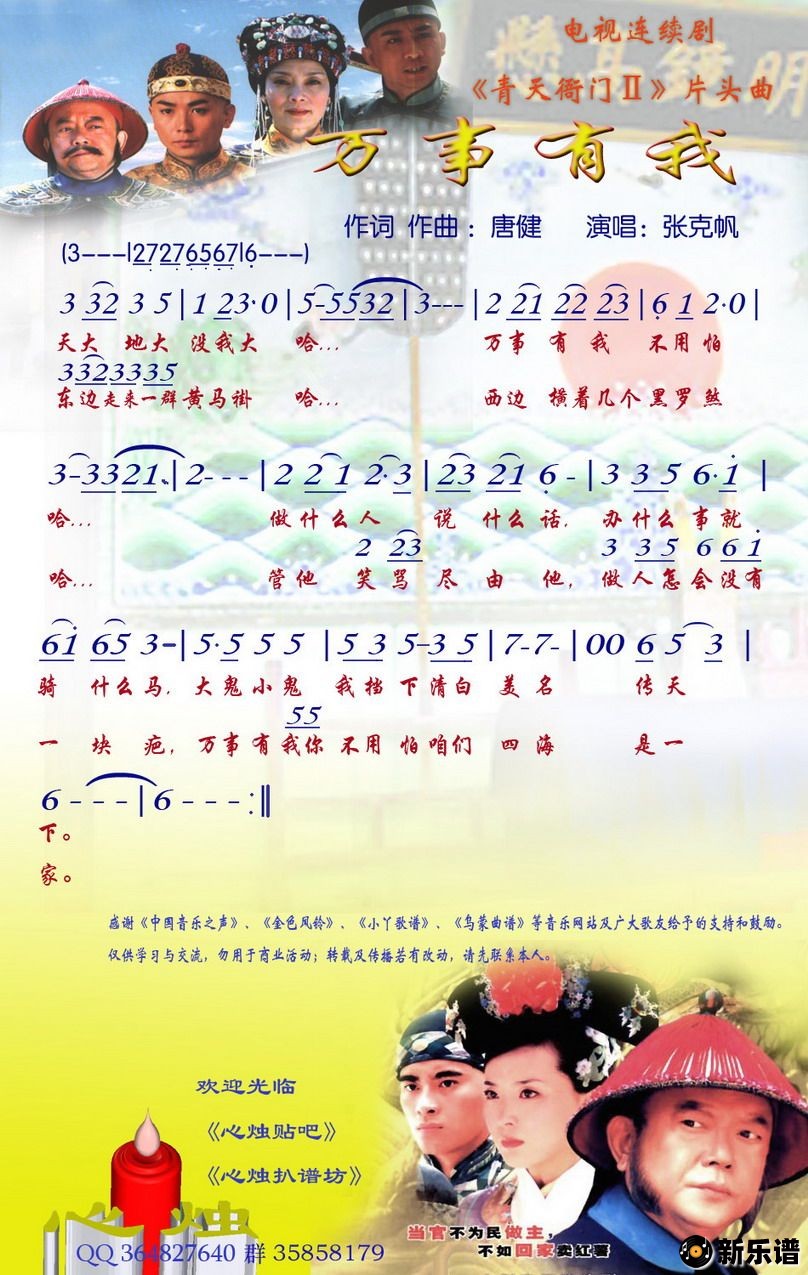 电视连续剧
明镜高悬
《青天衙门Ⅱ》片头曲
万事有我
作词 作曲：唐健 演唱：张克帆
(3---|27276567|6---)
3 32 3 5|1 23·0|5-5532|3---|2 21 22 23|6 1 2·0|
天大 地大 没我大 哈... 万事有我 不用怕
3323335
东边走来一群黄马褂 哈... 西边 横着几个黑罗煞
3-3321.|2---|2 2 1 2·3|23 21 6-|3 3 5 6·1|
哈... 做什么人 说什么话, 办什么事就
2 23 3 35 661
哈... 管他 笑骂尽由他, 做人怎会没有
61 65 3-|5·5 5 5|5 3 5-3 5|7-7-|00 6 5 3|
骑什么马, 大鬼小鬼 我挡下清白 美名 传天
55
一块疤, 万事有我你不用怕咱们 四海 是一
6---|6---:‖
下。
家。
感谢《中国音乐之声》、《金色风铃》、《小丫歌谱》、《乌蒙曲谱》等音乐网站及广大歌友给予的支持和鼓励。
仅供学习与交流，勿用于商业活动；转载及传播若有改动，请先联系本人。
欢迎光临
《心烛贴吧》
《心烛扒谱坊》
心烛
QQ 364827640 群 35858179
当官不为民做主，
不如回家卖红薯
新乐谱